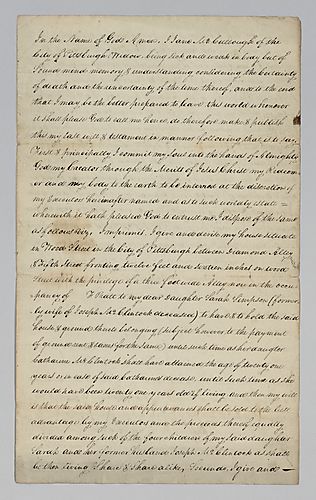 In the Name of God Amen. I Jane McCullough of the
City of Pittsburgh Widow being sick and weak in body but of
Sound mind memory & understanding considering the certainty
of death and the uncertainty of the time thereof, and to the end
that I may be the better prepared to leave this world whenever
it shall please God to call me hence do therefore make & publish
this my last will & testament in manner following, that is to say
First & principally I commit my Soul into the hands of Almighty
God my Creator through the Merits of Jesus Christ my Redeem
er and my body to the earth to be interred at the discretion of
my Executors hereinafter named and as to such worldly estate
wherewith it hath pleased God to entrust me I dispose of the same
as follows viz, Imprimis, I give and devise my house situate
in Wood Street in the City of Pittsburgh between Diamond Alley
& Fifth Street fronting twelve feet and sixteen inches on Wood
Street with the privilege of a three foot wide Alley now in the occu
pancy of T Hall to my dear daughter Sarah Simpson (former
ly wife of Joseph McClintock deceased) to have & to hold the said
house & ground thereto belonging (subject however to the payment
of ground rent & taxes for the same) until such time as her daughter
Catharine McClintock shall have attained the age of twenty one
years or in case of said Catharines decease, until such time as she
would have been twenty one years old if living and then my will
is that the said house and appurtenances shall be sold to the best
advantage by my Executors and the proceeds thereof equally
divided among such of the four children of my said daughter
Sarah and her former husband Joseph McClintock as shall
be then living Share & Share alike, Secundo, I give and